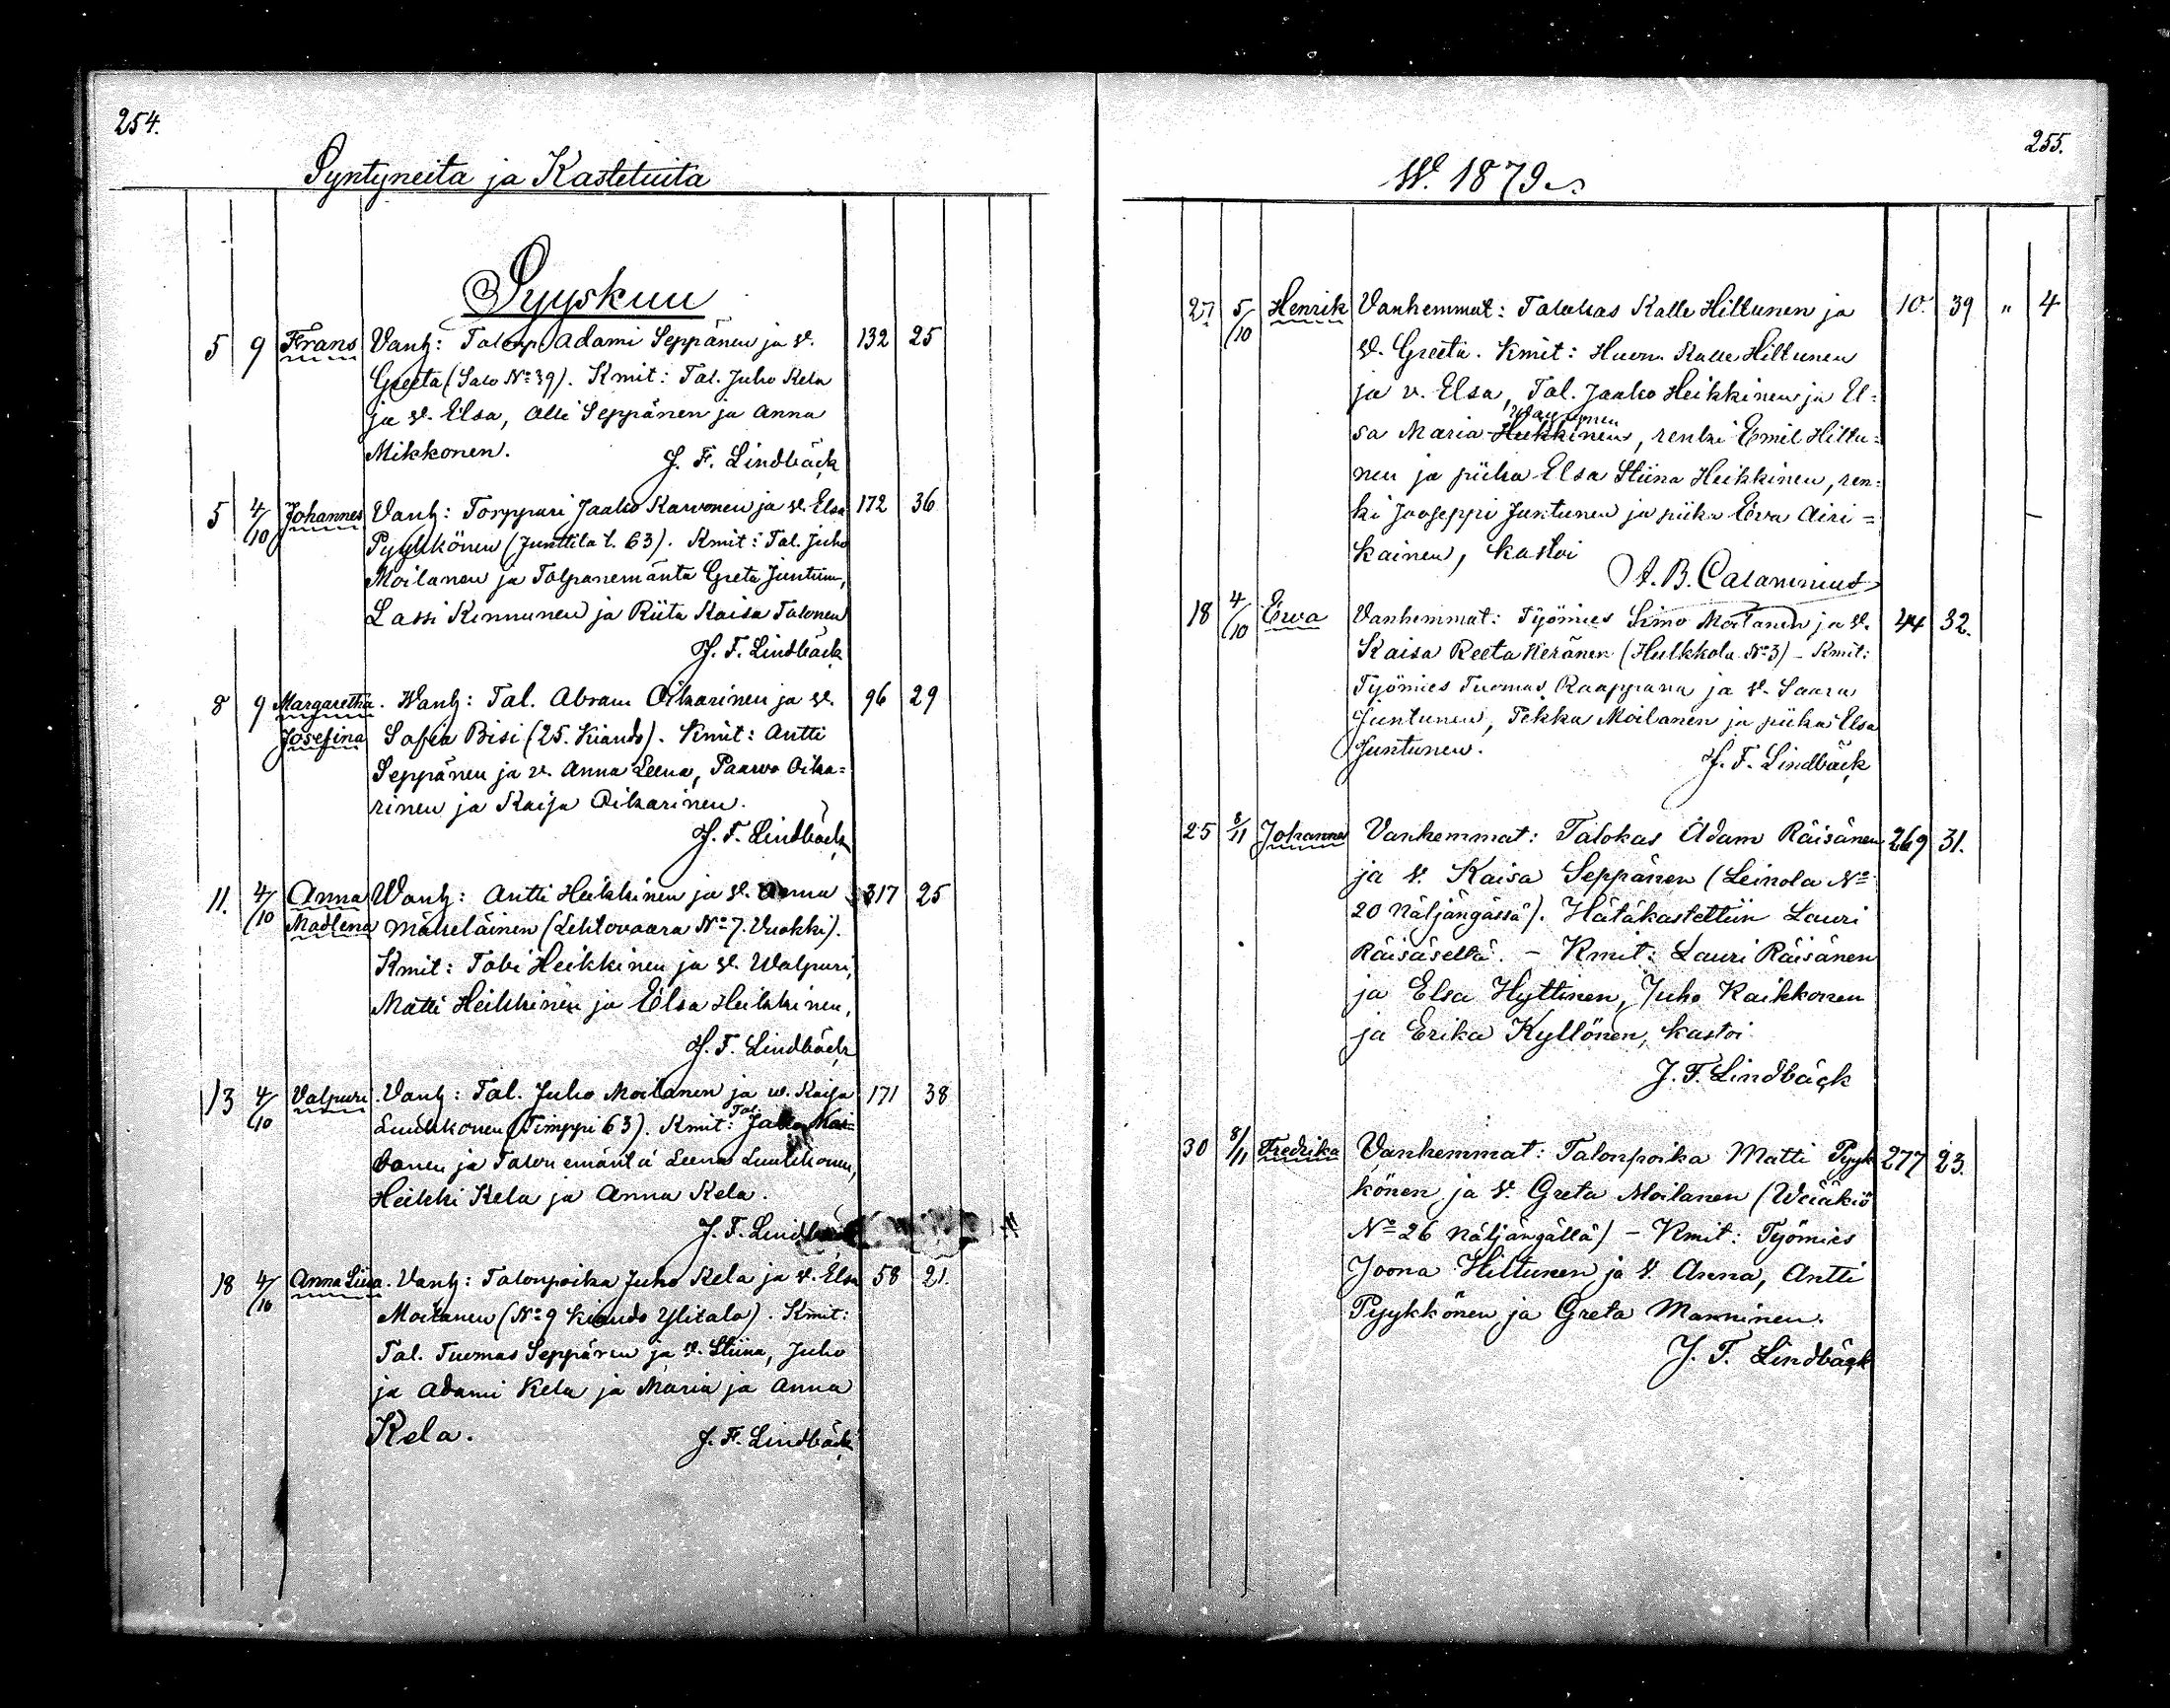 254.
Syntyneitä ja Kastetuita
Syyskuu
5 9 Frans Vanh: Talonp. Adami Seppänen ja v. 132 25
Greeta (Salo No 39). Kmit: Tal. Juho Kela
ja v. Elsa, Olli Seppänen ja Anna
Mikkonen. J. F. Lindbäck
5 4/10 Johannes Vanh: Torppari Jaako Karvonen ja v. Elsa 172 36
Pyykkönen (Junttila t. 63). Kmit: Tal. Juho
Moilanen ja Talonemäntä Greta Juntunen,
Lassi Kinnunen ja Riita Kaisa Talonen
J. F. Lindbäck
8 9 Margaretha Vanh: Tal. Abram Oikarinen ja v. 96 29
Josefina Sofia Bisi (25. Kianto). Kmit: Antti
Seppänen ja v. Anna Leena, Paavo Oika=
rinen ja Kaija Oikarinen.
J. F. Lindbäck
11. 4/10 Anna Vanh: Antti Heikkinen ja v. Anna 317 25
Madlena Mäkeläinen (Lehtovaara No 7. Vuokki).
Kmit: Tobi Heikkinen ja v. Walpuri,
Matti Heikkinen ja Elsa Heikkinen,
J. F. Lindbäck
13 4/10 Valpuri Vanh: Tal. Juho Moilanen ja v. Kaija 171 38
Luukkonen (Timppi 63). Kmit: Tal. Jako Moi=
lanen ja Talon emäntä Leena Luukkonen,
Heikki Kela ja Anna Kela.
J. F. Lindbäck
18 4/10 Anna Liisa. Vanh: Talonpoika Juho Kela ja v. Elsa 58 21.
Moilanen (No 9 Kianto Ylitalo). Kmit:
Tal. Tuomas Seppänen ja v. Stiina, Juho
ja Adami Kela ja Maria ja Anna
Kela. J. F. Lindbäck
255.
W. 1879.
27 5/10 Henrik Vanhemmat: Talokas Kalle Hiltunen ja 10. 39 " 4
v. Greeta. Kmit: Huon. Kalle Hiltunen
ja v. Elsa, Tal. Jaako Heikkinen ja El=
sa Maria Heikkinen, renki Emil Hiltu=
nen ja piika Elsa Stiina Heikkinen, ren=
ki Jooseppi Juntunen ja piika Eeva Airi=
kainen, kastoi
A. B. Calamnius
18 4/10 Eeva Vanhemmat: Työmies Simo Moilanen ja v. 44 32.
Kaisa Reeta Keränen (Hulkkola No 3) – Kmit:
Työmies Tuomas Raappana ja v. Saara
Juntunen, Pekka Moilanen ja piika Elsa
Juntunen. J. F. Lindbäck
25 8/11 Johannes Vanhemmat: Talokas Adam Räisänen 269 31.
ja v. Kaisa Seppänen (Leinola No
20 Näljängässä). Hätäkastettiin Lauri
Räisäseltä. – Kmit: Lauri Räisänen
ja Elsa Hyttinen, Juho Kaikkonen
ja Erika Kyllönen, kastoi
J. F. Lindbäck
30 8/11 Fredrika Vanhemmat: Talonpoika Matti Pyyk 277 23.
könen ja v. Greta Moilanen (Weiäkiö
No 26 Näljängällä) – Kmit: Työmies
Joona Hiltunen ja v. Anna, Antti
Pyykkönen ja Greta Manninen.
J. F. Lindbäck